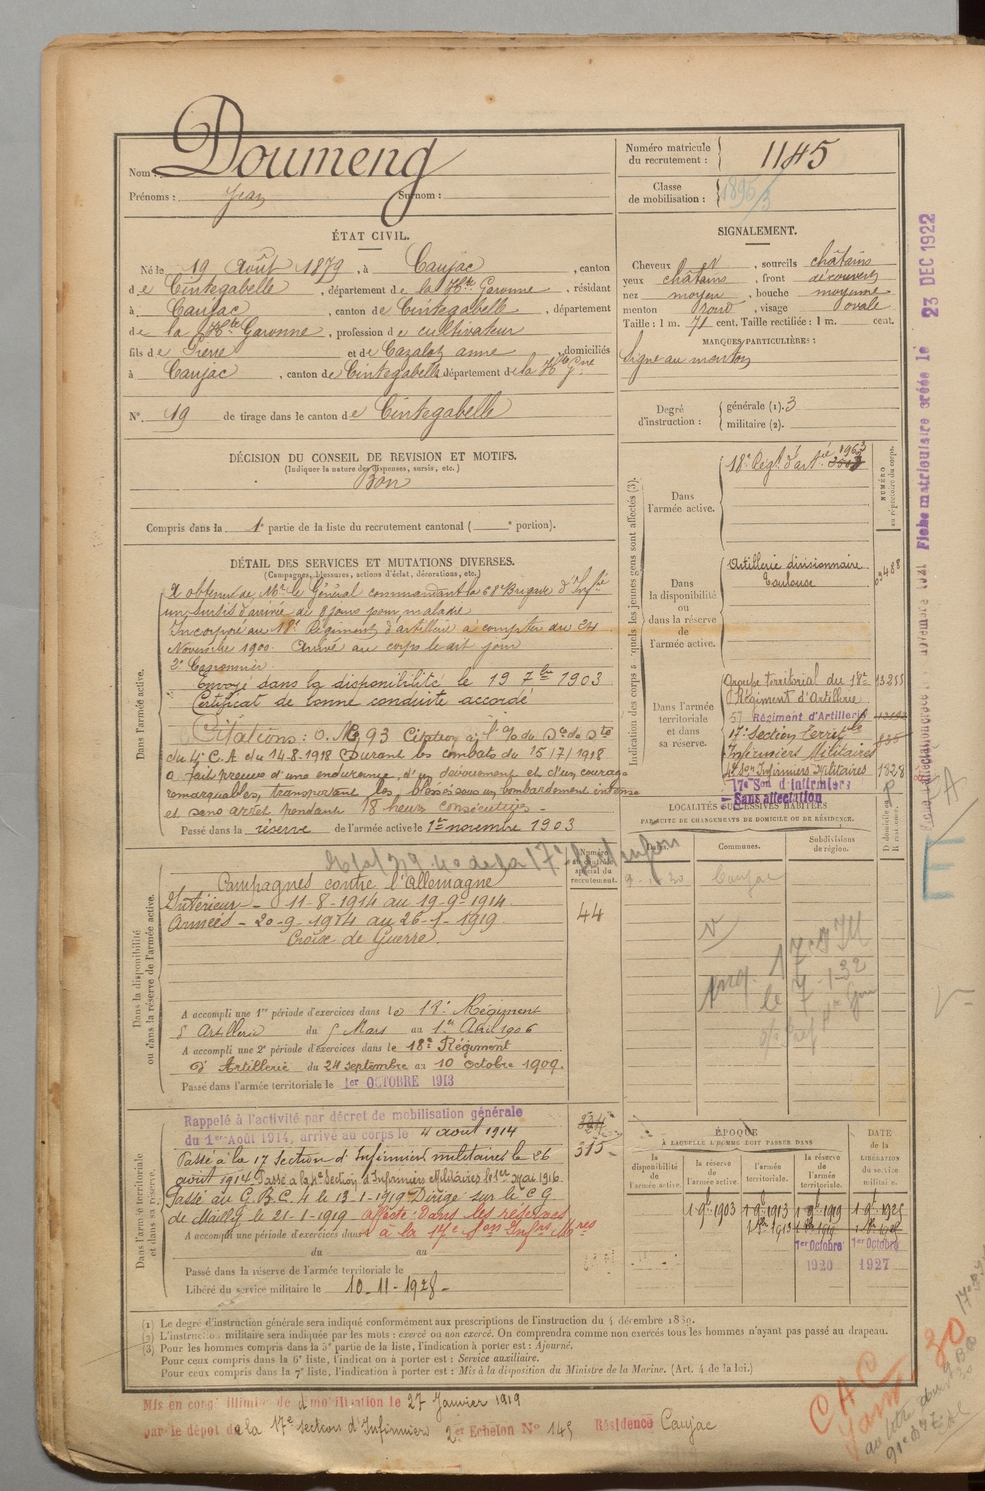 Nom : Doumeng
Prénoms : Jean Surnom :
Numéro matricule du recrutement : 1145
Classe de mobilisation : 1896/3
ÉTAT CIVIL.
Né le 19 Août 1879, à Caujac, canton
de Cintegabelle, département de la Hte Garonne, résidant
à Caujac, canton de Cintegabelle, département
de la Hte Garonne, profession de cultivateur
fils de Pierre et de Cazalot anne, domiciliés
à Caujac, canton de Cintegabelle département de la Hte Gne
N° 19 de tirage dans le canton de Cintegabelle
SIGNALEMENT.
Cheveux , sourcils châtains
yeux châtains, front découvert
nez moyen, bouche moyenne
menton rond, visage ovale
Taille : 1 m. 71 cent. Taille rectifiée : 1 m. cent.
MARQUES PARTICULIÈRES :
Signe au menton
Degré d'instruction : générale (1). 3
militaire (2).
DÉCISION DU CONSEIL DE REVISION ET MOTIFS.
(Indiquer la nature des dispenses, sursis, etc.)
Bon
Compris dans la 1e partie de la liste du recrutement cantonal ( e portion).
DÉTAIL DES SERVICES ET MUTATIONS DIVERSES.
(Campagnes, blessures, actions d'éclat, décorations, etc.)
Dans l'armée active.
A obtenu de Mr le Général commandant la 68e Brigade d'Infie
un sursis d'arrivée de 8 jours pour maladie
Incorporé au 18e Régiment d'artillerie à compter du 24
Novembre 1900. Arrivé au corps le dit jour
2e Canonnier
Envoyé dans la disponibilité le 19 7bre 1903
Certificat de bonne conduite accordé
Citations : O. No 93 Citation à l'O/ du Sce de Sté
du 4e C.A du 14-8-1918 Durant les combats du 15/7/1918
a fait preuve d'une endurance, d'un dévouement et d'un courage
remarquables, transportant les blessés sous un bombardement intense
et sans arrêt pendant 18 heures consécutives -
Passé dans la réserve de l'armée active le 1er novembre 1903
Dans la disponibilité ou dans la réserve de l'armée active.
Campagnes contre l'Allemagne
Intérieur - 11-8-1914 au 19-9-1914.
Armées - 20-9-1914 au 26-1-1919
Croix de Guerre.
A accompli une 1re période d'exercices dans le 19e Régiment
d'Artillerie du 5 Mars au 1er Avril 1906
A accompli une 2e période d'exercices dans le 18e Régiment
d'Artillerie du 24 septembre au 10 octobre 1909.
Passé dans l'armée territoriale le 1er OCTOBRE 1913
Numéro au contrôle spécial du recrutement.
44
Dans l'armée territoriale et dans sa réserve.
Rappelé à l'activité par décret de mobilisation générale
du 1er Août 1914, arrivé au corps le 4 août 1914
Passé à la 17 Section d'Infirmiers militaires le 26
août 1914 Passé à la 4e Section d'Infirmiers Militaires le 1er Mai 1916.
Passé au G.B.C. 4 le 13-1-1919 Dirigé sur le C G
de Mailly le 21-1-1919 affecté dans les réserves
A accompli une période d'exercices dans à la 17e Son Infirs Mres
du au
Passé dans la réserve de l'armée territoriale le
Libéré du service militaire le 10-11-1928-
315
Indication des corps auxquels les jeunes gens sont affectés (3).
NUMÉRO au répertoire du corps.
Dans l'armée active.
18e Régt d'artie 1963
Dans la disponibilité ou dans la réserve de l'armée active.
Artillerie divisionnaire
Toulouse
Dans l'armée territoriale et dans sa réserve.
Groupe territorial du 18e 13255
Régiment d'Artillerie
57 Régiment d'Artillerie
17e Section Territle
Infirmiers Militaires
4e Son Infirmiers Militaires 1828
17e Son d'Infirmiers
Sans affectation
LOCALITÉS SUCCESSIVES HABITÉES
PAR SUITE DE CHANGEMENTS DE DOMICILE OU DE RÉSIDENCE.
Communes. Subdivisions de région. D domicile ou R résidence.
Caujac
ÉPOQUE
À LAQUELLE L'HOMME DOIT PASSER DANS
la disponibilité de l'armée active. la réserve de l'armée active. l'armée territoriale. la réserve de l'armée territoriale. DATE de la LIBÉRATION du service militaire.
1 9bre 1903 1 9bre 1913 1 9bre 1919 1 9bre 1925
1er Octobre 1920
1er Octobre 1927
(1) Le degré d'instruction générale sera indiqué conformément aux prescriptions de l'instruction du 4 décembre 1889.
(2) L'instruction militaire sera indiquée par les mots : exercé ou non exercé. On comprendra comme non exercés tous les hommes n'ayant pas passé au drapeau.
(3) Pour les hommes compris dans la 5e partie de la liste, l'indication à porter est : Ajourné.
Pour ceux compris dans la 6e liste, l'indication à porter est : Service auxiliaire.
Pour ceux compris dans la 7e liste, l'indication à porter est : Mis à la disposition du Ministre de la Marine. (Art. 4 de la loi.)
Mis en congé illimité de démobilisation le 27 Janvier 1919
par le dépot de la 17e section d'Infirmiers 2e Echelon No 145 Résidence Caujac
Fiche matriculaire créée le 23 DEC 1922
CAC
30